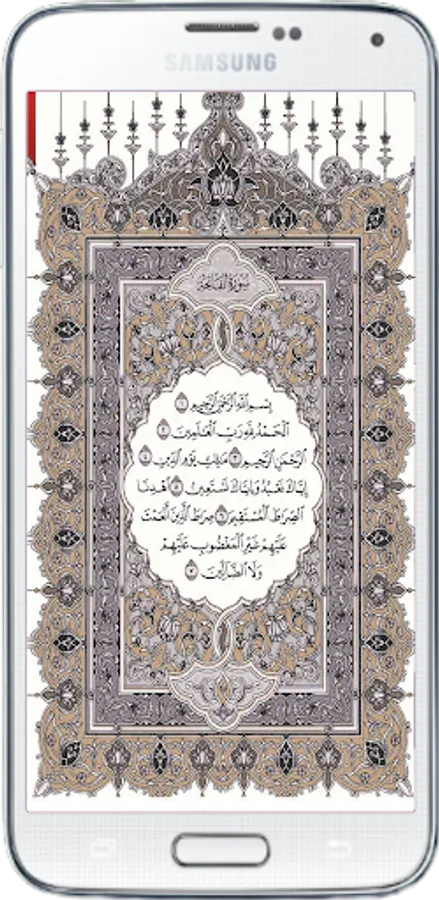 SAMSUNG
سورة الفاتحة
بسم الله الرحمن الرحيم ١
الحمد لله رب العلمين ٢
الرحمن الرحيم ٣ ملك يوم الدين ٤
إياك نعبد وإياك نستعين ٥ اهدنا
الصراط المستقيم ٦ صراط الذين أنعمت
عليهم غير المغضوب عليهم
ولا الضالين ٧